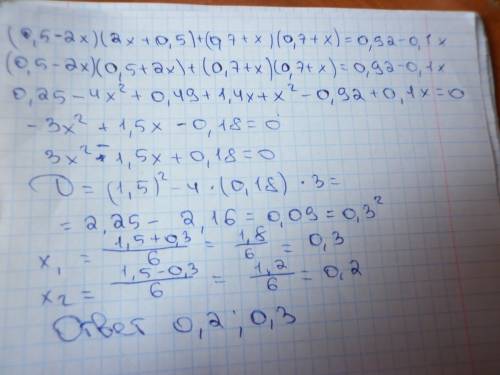 (0,5-2x)(2x+0,5)+(0,7+x)(0,7+x)=0,92-0,1x
(0,5-2x)(0,5+2x)+(0,7+x)(0,7+x)=0,92-0,1x
0,25-4x²+0,49+1,4x+x²-0,92+0,1x=0
-3x²+1,5x-0,18=0
3x²-1,5x+0,18=0
D=(1,5)²-4·(0,18)·3=
=2,25-2,16=0,09=0,3²
x₁=(1,5+0,3)/6=1,8/6=0,3
x₂=(1,5-0,3)/6=1,2/6=0,2
Ответ 0,2; 0,3